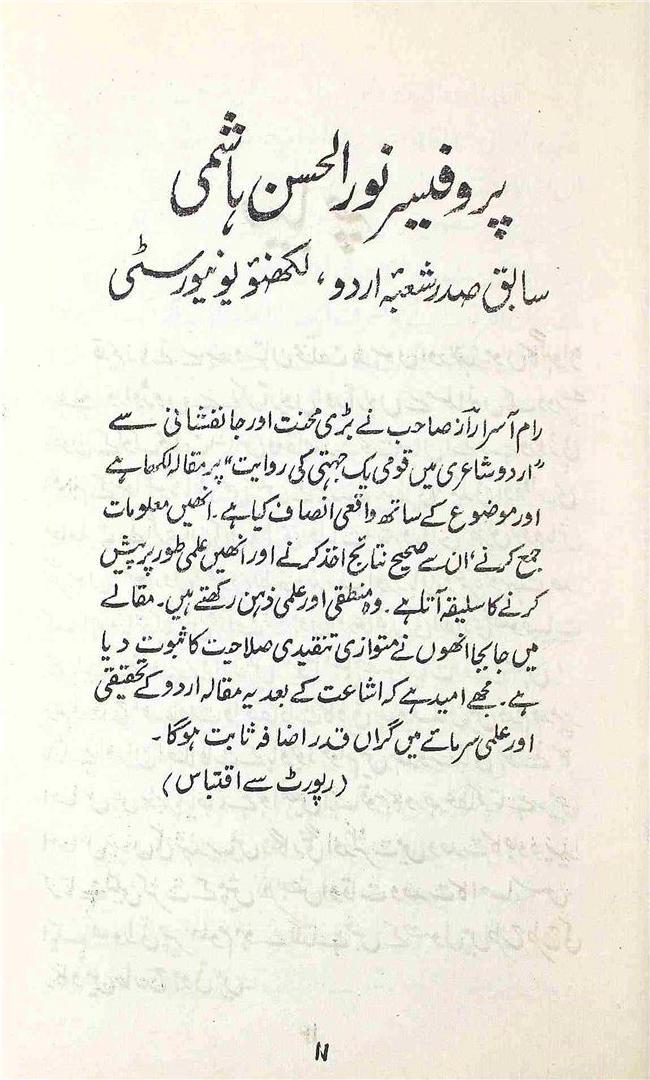 پروفیسر نور الحسن ہاشمی
سابق صدر شعبۂ اردو، لکھنؤ یونیورسٹی
رام آسرا راز صاحب نے بڑی محنت اور جانفشانی سے
"اردو شاعری میں قومی یک جہتی کی روایت" پر مقالہ لکھا ہے
اور موضوع کے ساتھ واقعی انصاف کیا ہے۔ انھیں معلومات
جمع کرنے، ان سے صحیح نتائج اخذ کرنے اور انھیں علمی طور پر پیش
کرنے کا سلیقہ آتا ہے۔ وہ منطقی اور علمی ذہن رکھتے ہیں۔ مقالے
میں جابجا انھوں نے متوازی تنقیدی صلاحیت کا ثبوت دیا
ہے۔ مجھے امید ہے کہ اشاعت کے بعد یہ مقالہ اردو کے تحقیقی
اور علمی سرمائے میں گراں قدر اضافہ ثابت ہوگا۔
(رپورٹ سے اقتباس)